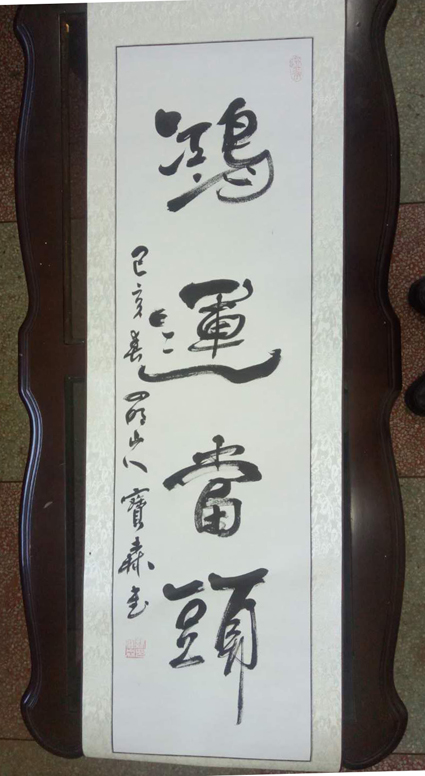 鴻運當頭
己亥春 山人寶森書